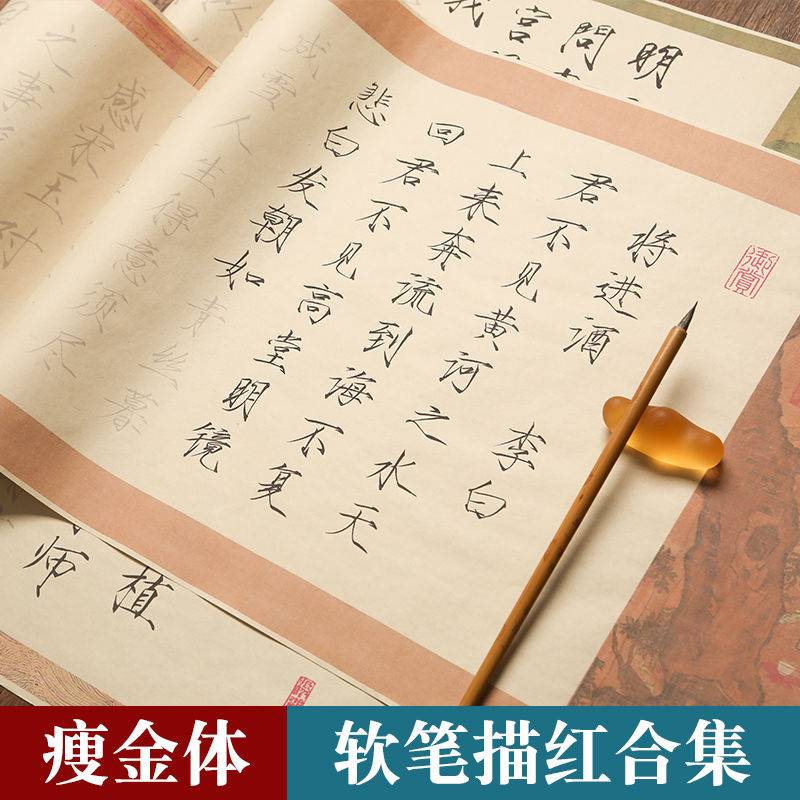 明
問
宫
我
将进酒 李白
君不见黄河之水天
上来奔流到海不复
回君不见高堂明镜
悲白发朝如青丝暮
成雪人生得意须尽
御赏
感宋玉对
之事
植
师
瘦金体
软笔描红合集